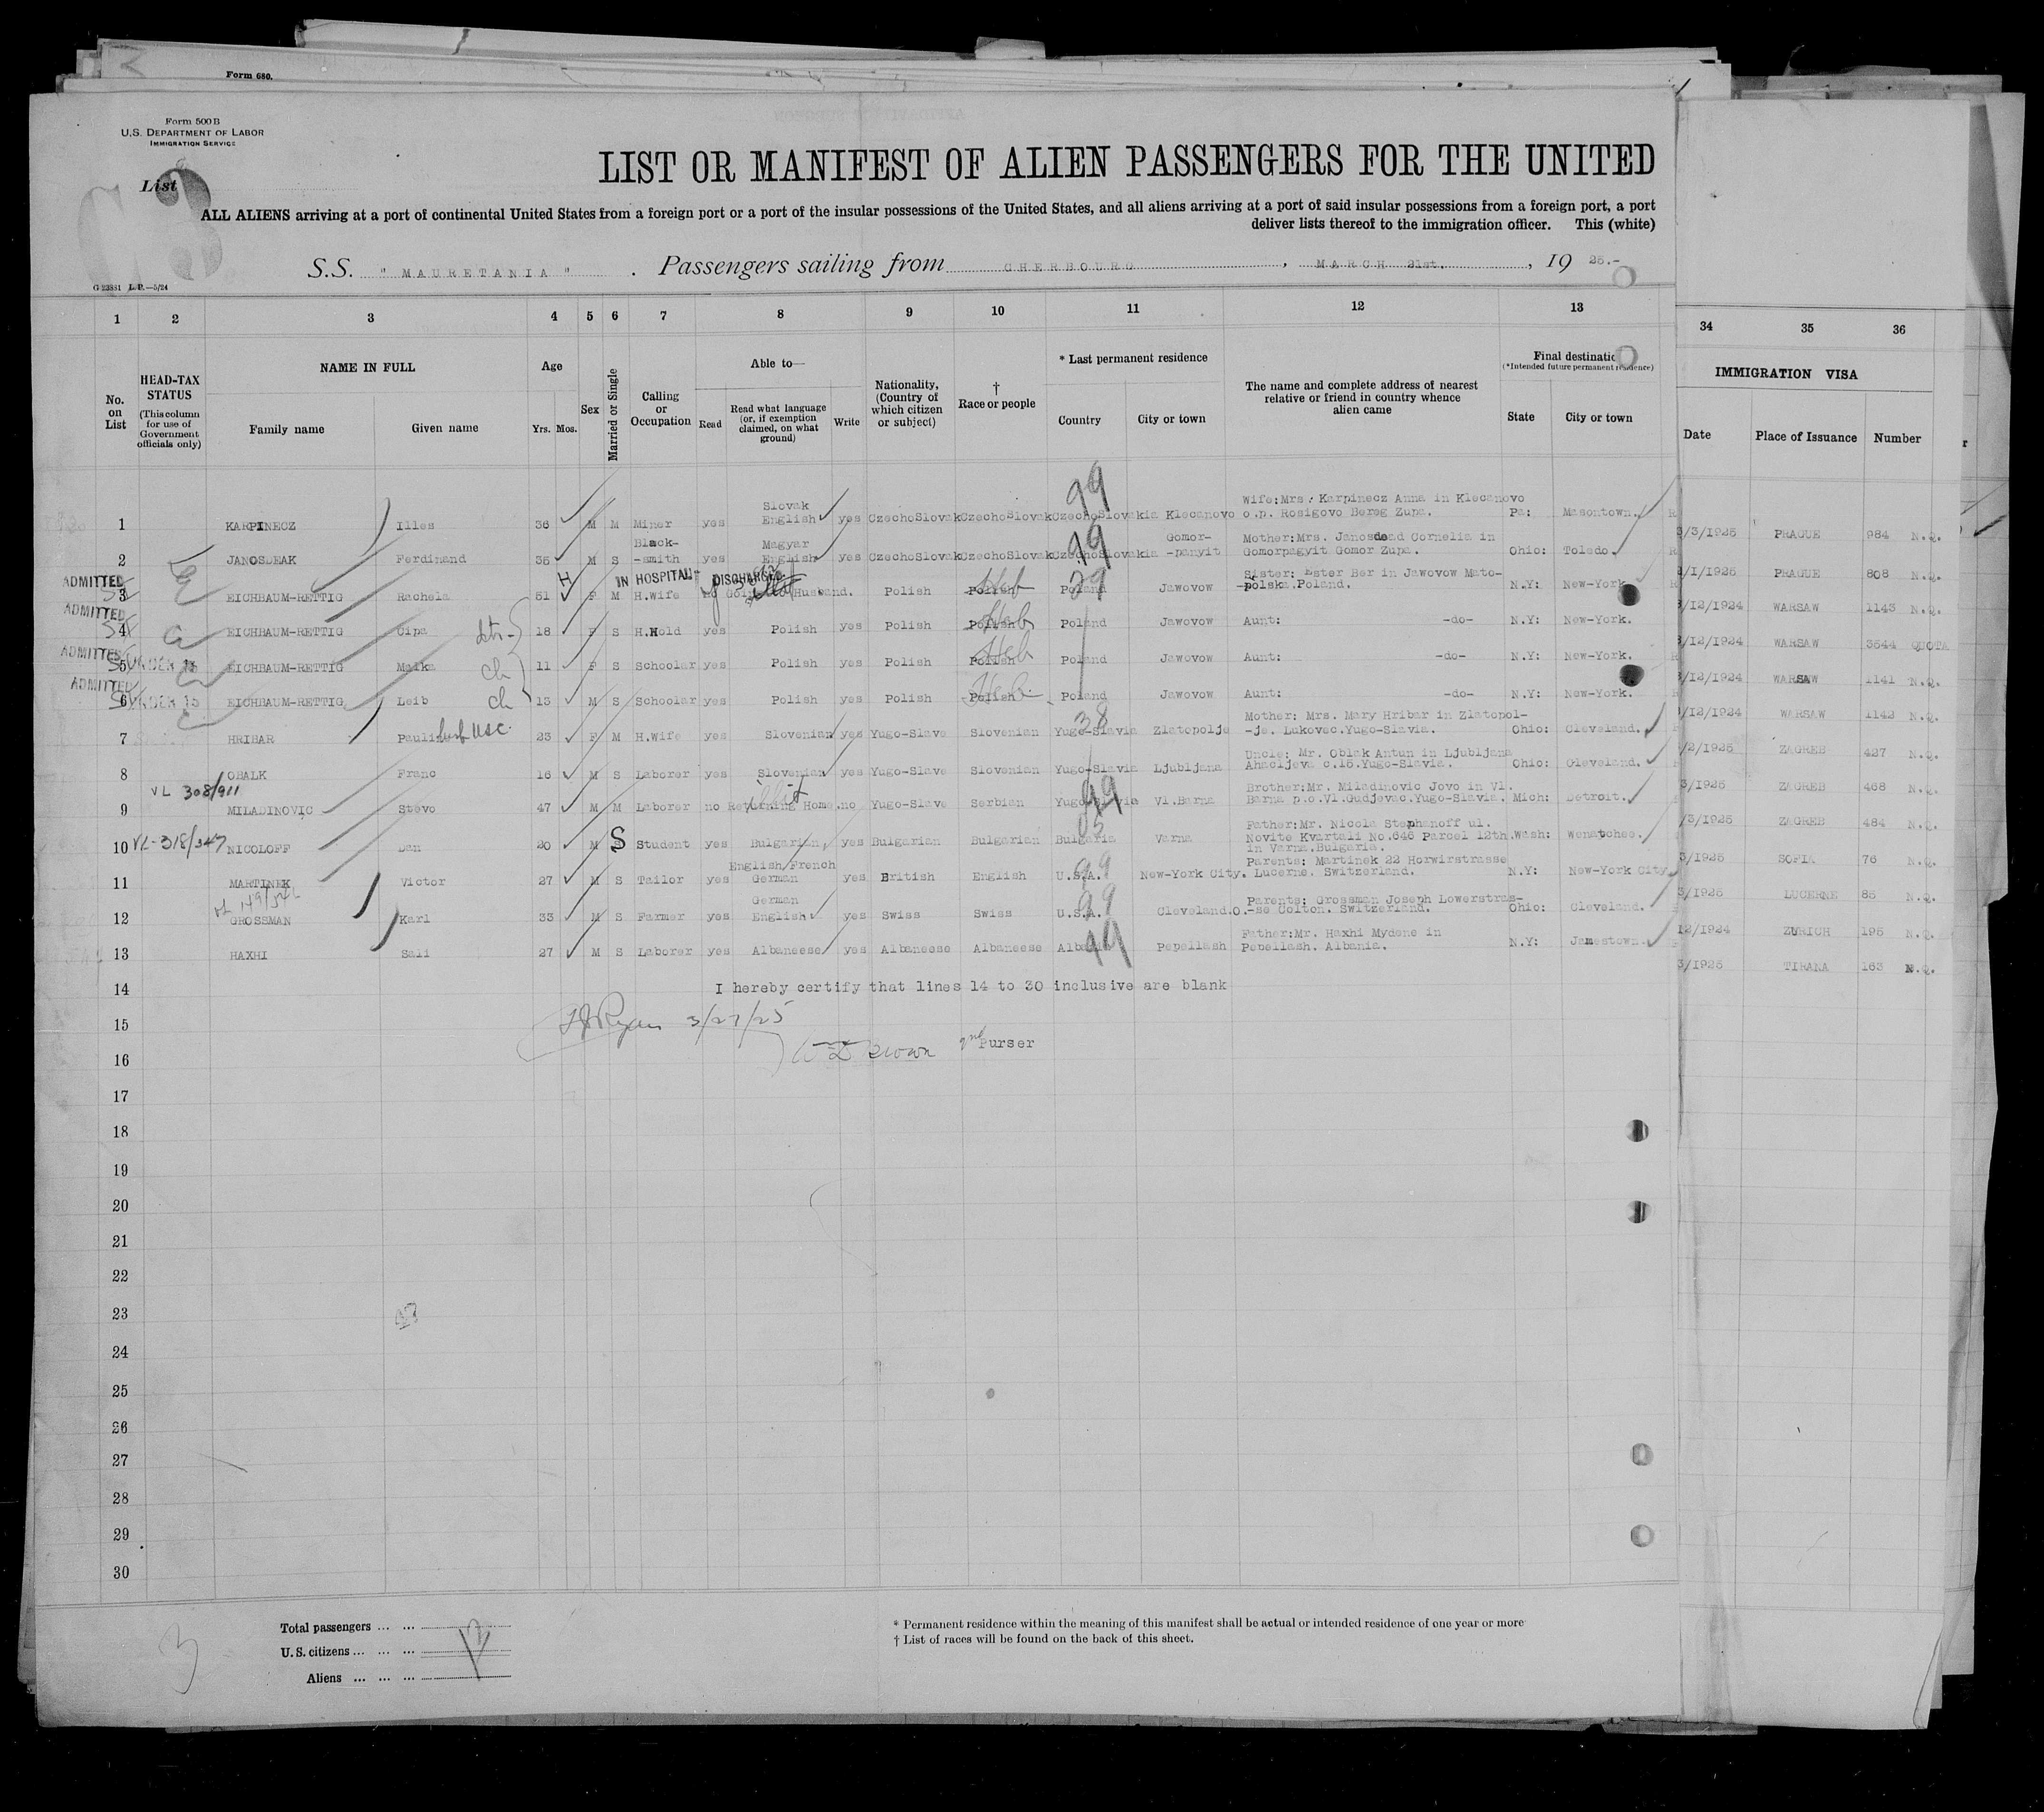 Form 680.
Form 500 B
U.S. DEPARTMENT OF LABOR
IMMIGRATION SERVICE
List 3
LIST OR MANIFEST OF ALIEN PASSENGERS FOR THE UNITED
ALL ALIENS arriving at a port of continental United States from a foreign port or a port of the insular possessions of the United States, and all aliens arriving at a port of said insular possessions from a foreign port, a port
deliver lists thereof to the immigration officer. This (white)
S.S. "MAURETANIA". Passengers sailing from CHERBOURG, MARCH 21st., 19 25.-
G 23881 L.P.—5/24
1 2 3 4 5 6 7 8 9 10 11 12 13 34 35 36
No. on List
HEAD-TAX STATUS
(This column for use of Government officials only)
NAME IN FULL
Family name Given name
Age
Yrs. Mos.
Sex
Married or Single
Calling or Occupation
Able to—
Read
Read what language (or, if exemption claimed, on what ground)
Write
Nationality, (Country of which citizen or subject)
† Race or people
* Last permanent residence
Country City or town
The name and complete address of nearest relative or friend in country whence alien came
Final destination
(*Intended future permanent residence)
State City or town
IMMIGRATION VISA
Date Place of Issuance Number
99
1 KARPINECZ Illes 36 M M Miner yes Slovak English yes CzechoSlovak CzechoSlovak CzechoSlovakia Klecanovo Wife:Mrs. Karpinecz Anna in Klecanovo o.p. Rosigovo Bereg Zupa. Pa: Masontown. 3/1925 PRAGUE 984 N.Q.
99
2 JANOSDEAK Ferdinand 35 M S Black--smith yes Magyar English yes CzechoSlovak CzechoSlovak CzechoSlovakia Gomor--panyit Mother:Mrs. Janosdead Cornelia in Gomorpagyit Gomor Zupa. Ohio: Toledo. /1/1925 PRAGUE 808 N.Q.
ADMITTED H IN HOSPITAL DISCHARGED
3 EICHBAUM-RETTIG Rachela 51 F M H.wife no Going to Husband. Polish Polish Heb Poland 29 Jawovow Sister: Ester Ber in Jawovow Mato--polska.Poland. N.Y: New-York. /12/1924 WARSAW 1143 N.Q.
ADMITTED
4 EICHBAUM-RETTIG Cipa 18 F S H.Hold yes Polish yes Polish Polish Heb Poland Jawovow Aunt: -do- N.Y: New-York. /12/1924 WARSAW 3544 QUOTA
ADMITTED UNDER 16
5 EICHBAUM-RETTIG Malka ch 11 F S Schoolar yes Polish yes Polish Polish Heb Poland Jawovow Aunt: -do- N.Y: New-York. /12/1924 WARSAW 1141 N.Q.
ADMITTED UNDER 16
6 EICHBAUM-RETTIG Leib ch 13 M S Schoolar yes Polish yes Polish Polish Heb. Poland Jawovow Aunt: -do- N.Y: New-York. /12/1924 WARSAW 1142 N.Q.
38
7 HRIBAR Paulina husb USC. 23 F M H.Wife yes Slovenian yes Yugo-Slave Slovenian Yugo-Slavia Zlatopolje Mother: Mrs. Mary Hribar in Zlatopol--je. Lukovec.Yugo-Slavia. Ohio: Cleveland. /2/1925 ZAGREB 427 N.Q.
8 OBALK Franc 16 M S Laborer yes Slovenian yes Yugo-Slave Slovenian Yugo-Slavia Ljubljana Uncle: Mr. Oblak Antun in Ljubljana Ahacljeva c.15.Yugo-Slavia. Ohio: Cleveland. 3/1925 ZAGREB 468 N.Q.
VL 308/911
9 MILADINOVIC Stevo 47 M M Laborer no Returning Home. no Yugo-Slave Serbian Yugo-Slavia 99 Vl.Barna Brother:Mr. Miladinovic Jovo in Vl. Barna p.o.Vl.Gudjevac.Yugo-Slavia. Mich: Detroit. /3/1925 ZAGREB 484 N.Q.
05
10 VL-318/347 NICOLOFF Dan 20 M S Student yes Bulgarian, English/French yes Bulgarian Bulgarian Bulgaria Varna Father:Mr. Nicola Stephanoff ul. Novite Kvartali No.646 Parcel 12th. in Varna.Bulgaria. Wash: Wenatchee. 3/1925 SOFIA 76 N.Q.
99
11 MARTINEK Victor 27 M S Tailor yes German yes British English U.S.A. New-York City. Parents: Martinek 22 Horwirstrasse Lucerne. Switzerland. N.Y: New-York City. 3/1925 LUCERNE 85 N.Q.
99
12 GROSSMAN Karl 33 M S Farmer yes German English yes Swiss Swiss U.S.A. Cleveland.O. Parents: Grossman Joseph Lowerstras--se Colton. Switzerland. Ohio: Cleveland. 12/1924 ZURICH 195 N.Q.
99
13 HAXHI Sali 27 M S Laborer yes Albaneese yes Albaneese Albaneese Albania Pepellash Father:Mr. Haxhi Mydene in Pepellash. Albania. N.Y: Jamestown. 3/1925 TIRANA 163 N.Q.
14 I hereby certify that lines 14 to 30 inclusive are blank
15 Ryan 3/27/25
16 Brown 2nd Purser
17
18
19
20
21
22
23
24
25
26
27
28
29
30
Total passengers ... ...
U.S. citizens ... ... ... 13
Aliens ... ... ...
3
* Permanent residence within the meaning of this manifest shall be actual or intended residence of one year or more
† List of races will be found on the back of this sheet.